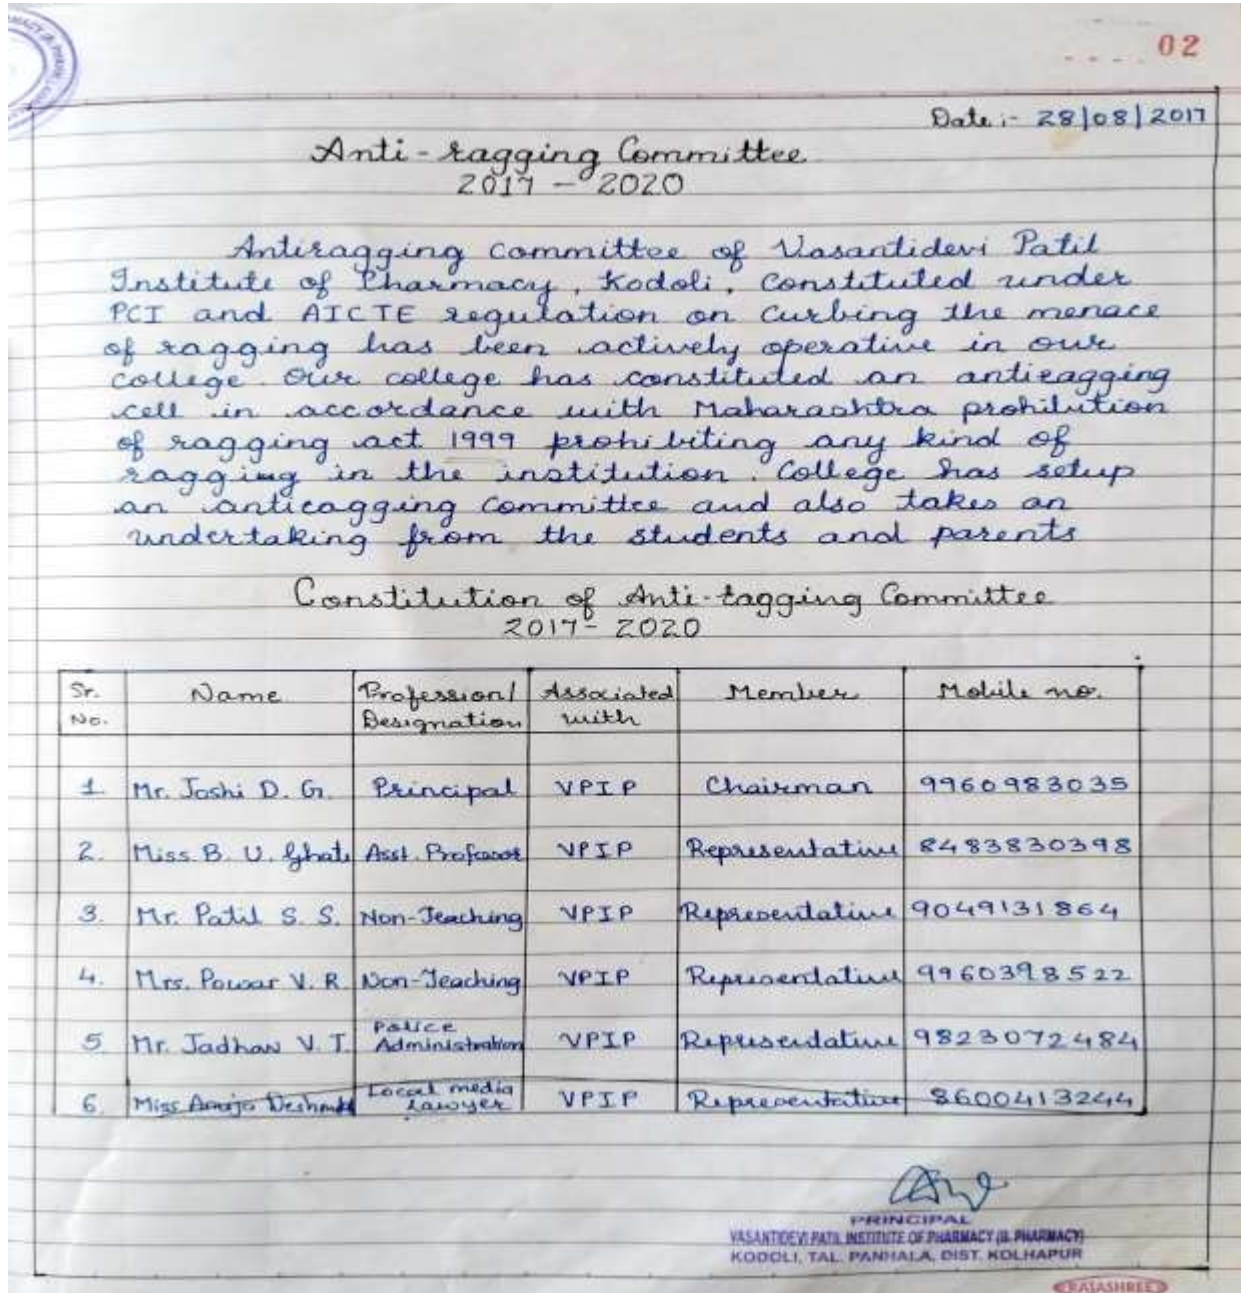 02
Date :- 28/08/2017
Anti-ragging Committee
2017 - 2020
Antiragging committee of Vasantidevi Patil
Institute of Pharmacy, Kodoli, Constituted under
PCI and AICTE regulation on Curbing the menace
of ragging has been actively operative in our
college. Our college has constituted an antiragging
cell in accordance with Maharashtra prohibution
of ragging act 1999 prohibiting any kind of
ragging in the institution. College has setup
an antiragging committee and also takes an
undertaking from the students and parents
Constitution of Anti-ragging Committee
2017- 2020
Sr. No. Name Profession/ Designation Associated with Member Mobile no.
1 Mr. Joshi D. G. Principal VPIP Chairman 9960983035
2. Miss. B. U. Ghate Asst. Professor VPIP Representative 8483830398
3. Mr. Patil S. S. Non-Teaching VPIP Representative 9049131864
4. Mrs. Powar V. R Non-Teaching VPIP Representative 9960398522
5 Mr. Jadhav V. T. Police Administration VPIP Representative 9823072484
6. Miss Deshmukh Local media Lawyer VPIP Representative 8600413244
PRINCIPAL
VASANTIDEVI PATIL INSTITUTE OF PHARMACY (B. PHARMACY)
KODOLI, TAL. PANHALA, DIST. KOLHAPUR
RAJASHREE